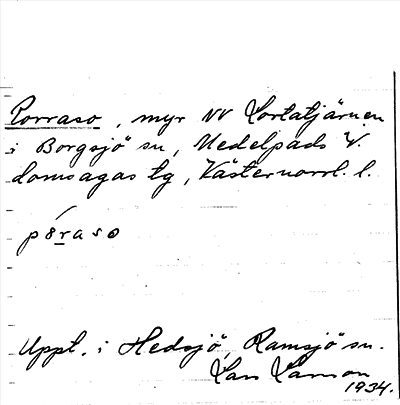 Porraso, myr NV Lortatjärnen
i Borgsjö sn, Medelpads V.
domsagas tg, Västernorrl. l.
póraso
Uppt. i Hedsjö, Ramsjö sn.
Lars Larsson
1934.